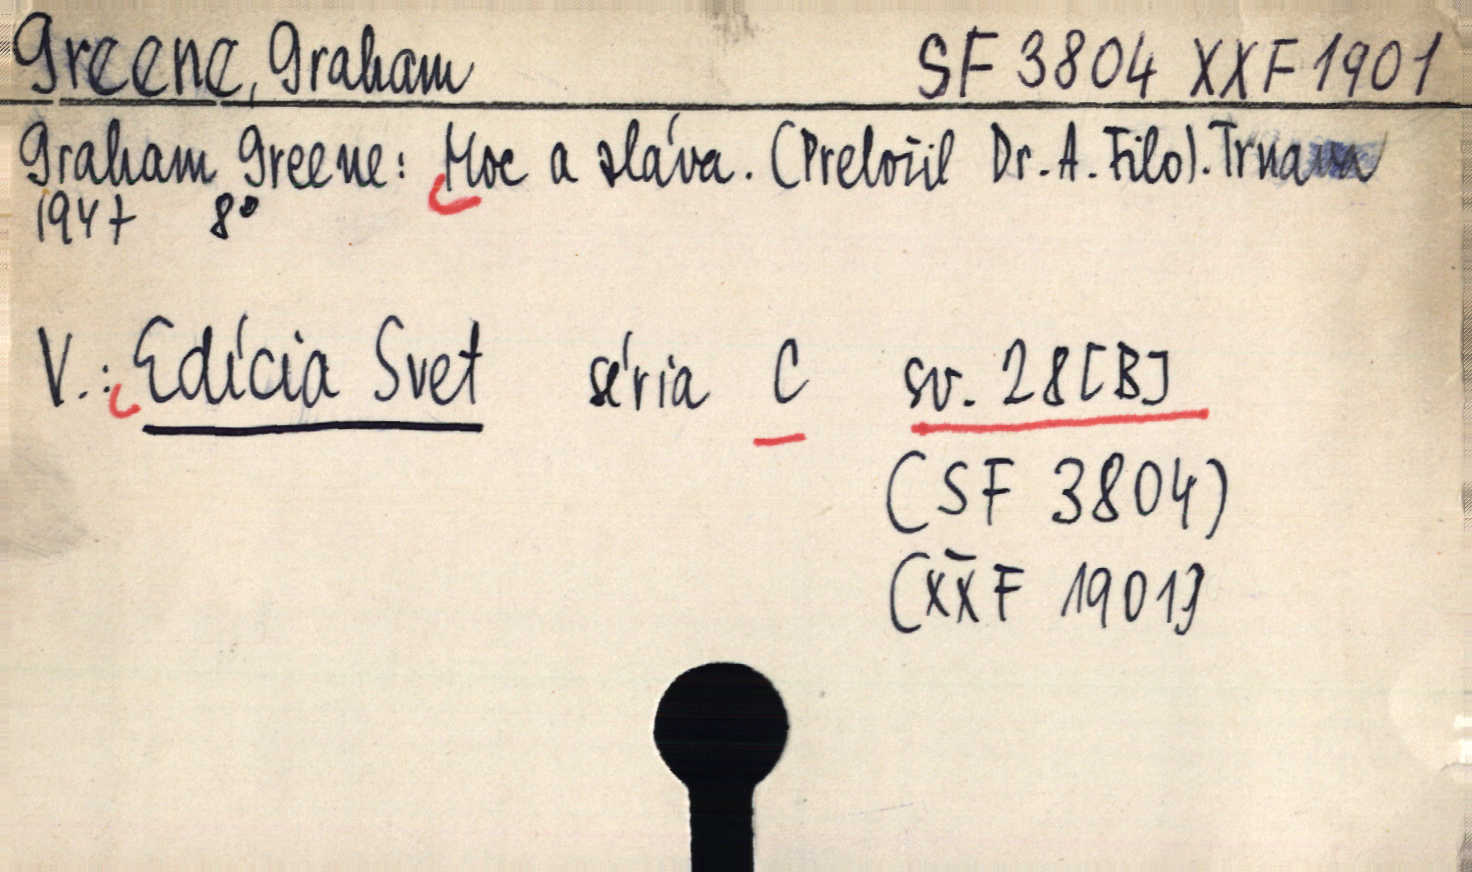 Greene, Graham SF 3804 XXF 1901
Graham Greene: Moc a sláva. (Preložil Dr. A. Filo). Trnava
1947 8°
V.: Edícia Svet séria C sv. 28[B]
(SF 3804)
(XXF 1901)